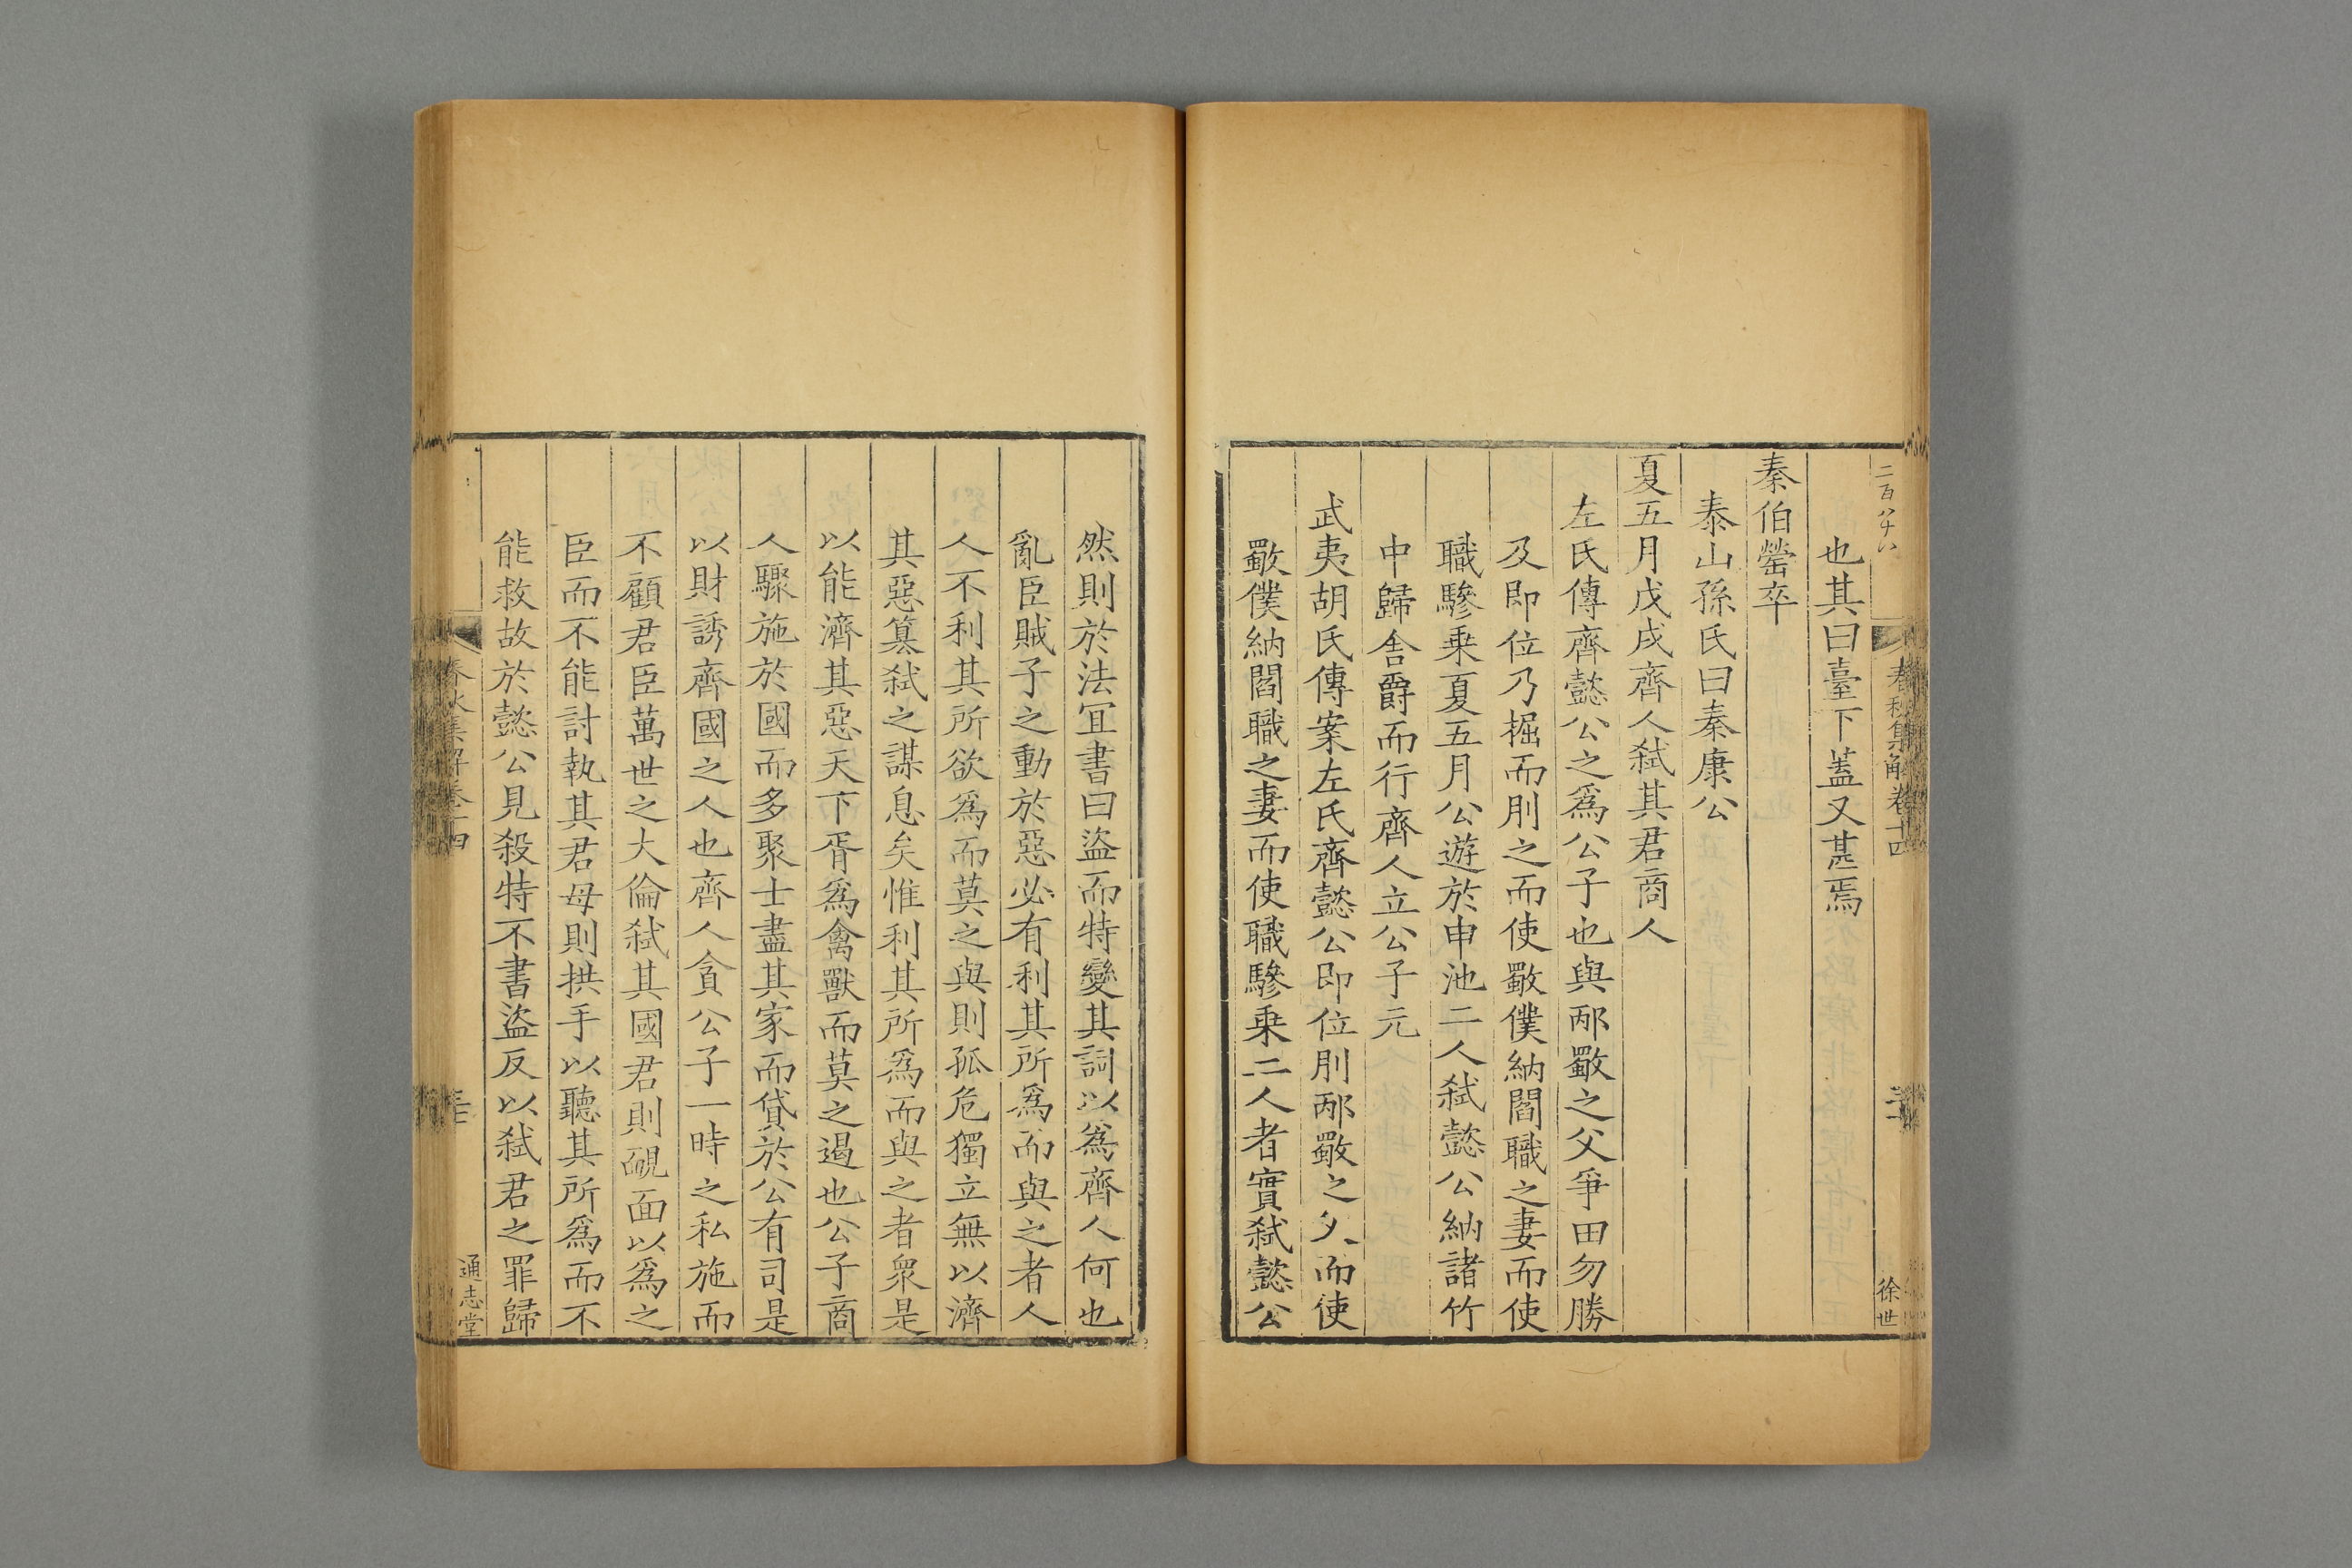 二百八十八
春秋集解卷十四
徐世
也其曰臺下蓋又甚焉
秦伯罃卒
泰山孫氏曰秦康公
夏五月戊戌齊人弒其君商人
左氏傳齊懿公之爲公子也與邴歜之父爭田勿勝
及即位乃掘而刖之而使歜僕納閻職之妻而使
職驂乗夏五月公遊於申池二人弒懿公納諸竹
中歸舍爵而行齊人立公子元
武夷胡氏傳案左氏齊懿公即位刖邴歜之父而使
歜僕納閻職之妻而使職驂乗二人者實弒懿公
然則於法宜書曰盜而特變其詞以爲齊人何也
亂臣賊子之動於惡必有利其所爲而與之者人
人不利其所欲爲而莫之與則孤危獨立無以濟
其惡篡弒之謀息矣惟利其所爲而與之者衆是
以能濟其惡天下胥爲禽獸而莫之遏也公子商
人驟施於國而多聚士盡其家而貸於公有司是
以財誘齊國之人也齊人貪公子一時之私施而
不顧君臣萬世之大倫弒其國君則靦面以爲之
臣而不能討執其君母則拱手以聽其所爲而不
能救故於懿公見殺特不書盜反以弒君之罪歸
春秋集解卷十四
通志堂